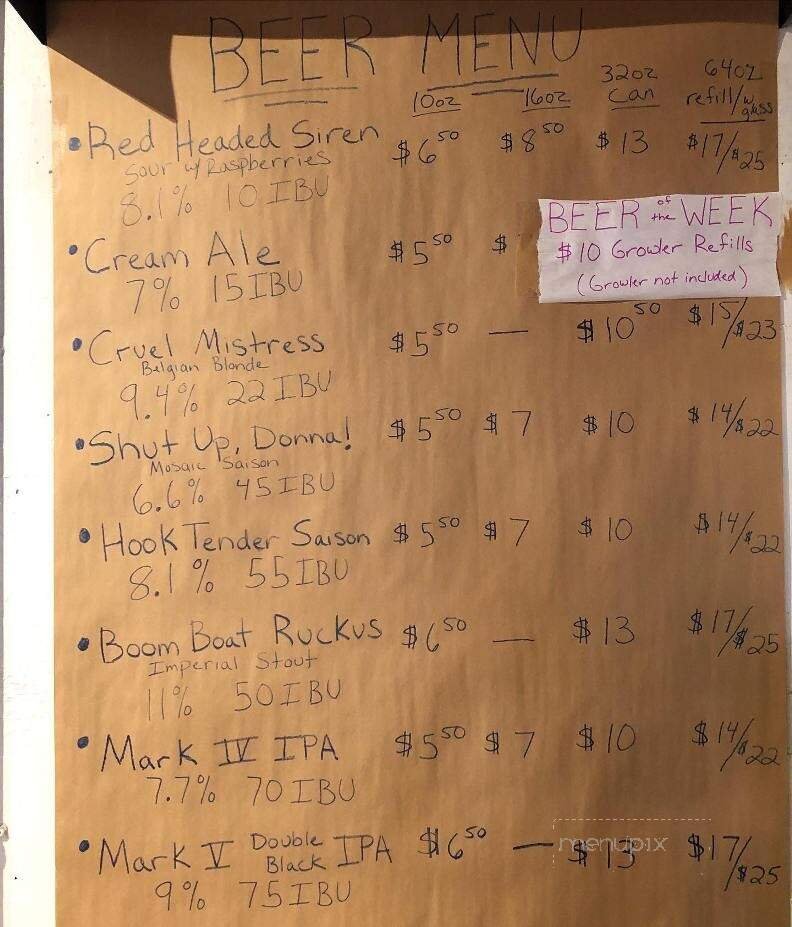 BEER MENU
10oz 16oz 32oz can 64oz refill/w glass
• Red Headed Siren $6 50 $8 50 $13 $17/$25
Sour w/ Raspberries
8.1% 10 IBU
BEER of the WEEK
$10 Growler Refills
(Growler not included)
• Cream Ale $5 50 $
7% 15 IBU
• Cruel Mistress $5 50 — $10 50 $15/$23
Belgian Blonde
9.4% 22 IBU
• Shut Up, Donna! $5 50 $7 $10 $14/$22
Mosaic Saison
6.6% 45 IBU
• Hook Tender Saison $5 50 $7 $10 $14/$22
8.1% 55 IBU
• Boom Boat Ruckus $6 50 — $13 $17/$25
Imperial Stout
11% 50 IBU
• Mark IV IPA $5 50 $7 $10 $14/$22
7.7% 70 IBU
• Mark V Double Black IPA $6 50 — $13 $17/$25
9% 75 IBU
menupix